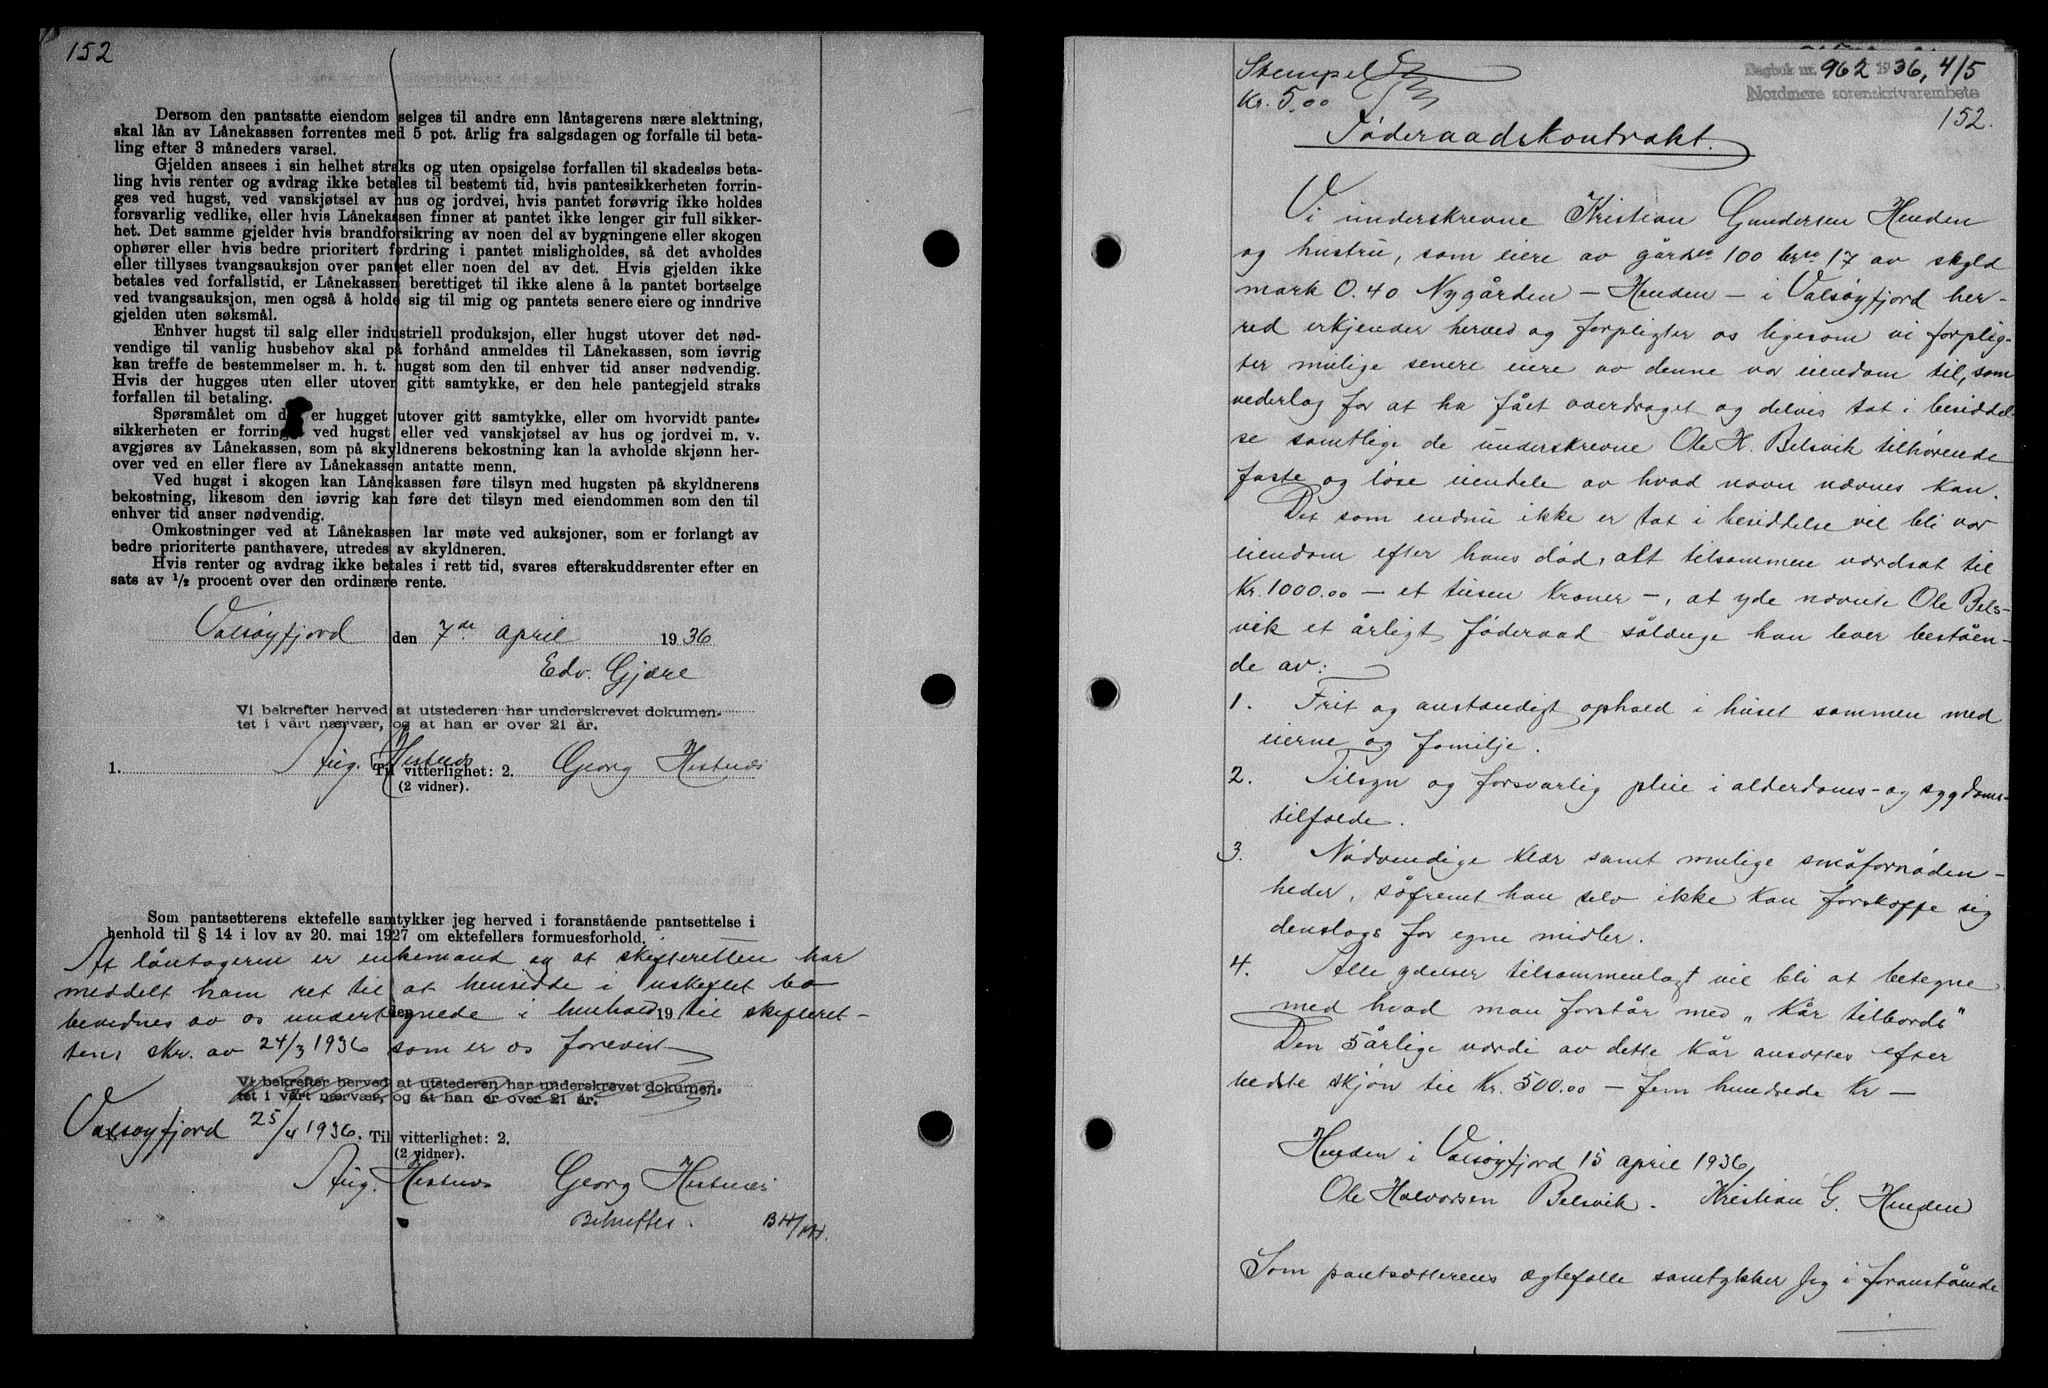 152
Dersom den pantsatte eiendom selges til andre enn låntagerens nære slektning,
skal lån av Lånekassen forrentes med 5 pct. årlig fra salgsdagen og forfalle til beta-
ling efter 3 måneders varsel.
Gjelden ansees i sin helhet straks og uten opsigelse forfallen til skadesløs beta-
ling hvis renter og avdrag ikke betales til bestemt tid, hvis pantesikkerheten forrin-
ges ved hugst, ved vanskjøtsel av hus og jordvei, hvis pantet forøvrig ikke holdes
forsvarlig vedlike, eller hvis Lånekassen finner at pantet ikke lenger gir full sikker-
het. Det samme gjelder hvis brandforsikring av noen del av bygningene eller skogen
ophører eller hvis bedre prioritert fordring i pantet misligholdes, så det avholdes
eller tillyses tvangsauksjon over pantet eller noen del av det. Hvis gjelden ikke
betales ved forfallstid, er Lånekassen berettiget til ikke alene å la pantet bortselge
ved tvangsauksjon, men også å holde sig til mig og pantets senere eiere og inndrive
gjelden uten søksmål.
Enhver hugst til salg eller industriell produksjon, eller hugst utover det nød-
vendige til vanlig husbehov skal på forhånd anmeldes til Lånekassen, som iøvrig
kan treffe de bestemmelser m. h. t. hugst som den til enhver tid anser nødvendig.
Hvis der hugges uten eller utover gitt samtykke, er den hele pantegjeld straks
forfallen til betaling.
Spørsmålet om d er hugget utover gitt samtykke, eller om hvorvidt pante-
sikkerheten er forringet ved hugst eller ved vanskjøtsel av hus og jordvei m. v.
avgjøres av Lånekassen, som på skyldnerens bekostning kan la avholde skjønn her-
over ved en eller flere av Lånekassen antatte menn.
Ved hugst i skogen kan Lånekassen føre tilsyn med hugsten på skyldnerens
bekostning, likesom den iøvrig kan føre det tilsyn med eiendommen som den til
enhver tid anser nødvendig.
Omkostninger ved at Lånekassen lar møte ved auksjoner, som er forlangt av
bedre prioriterte panthavere, utredes av skyldneren.
Hvis renter og avdrag ikke betales i rett tid, svares efterskuddsrenter efter en
sats av 1/2 procent over den ordinære rente.
Valsøyfjord den 7de april 1936
Edv. Gjære
Vi bekrefter herved at utstederen har underskrevet dokumen-
tet i vårt nærvær, og at han er over 21 år.
1. Aug. Hestnes Til vitterlighet: 2. Georg Hestnes
(2 vidner).
Som pantsetterens ektefelle samtykker jeg herved i foranstående pantsettelse i
henhold til § 14 i lov av 20. mai 1927 om ektefellers formuesforhold.
At låntageren er enkemand og at skifteretten har
meddelt ham ret til at hensidde i uskiftet bo
bevidnes av os undertegnede i henhold til skifteret-
den 19
tens skr. av 24/3 1936 som er os forevist
Vi bekrefter herved at utstederen har underskrevet dokumen-
tet i vårt nærvær, og at han er over 21 år.
Valsøyfjord 25/4 1936. Til vitterlighet: 2.
(2 vidner).
Aug. Hestnes Georg Hestnes
Bekreftes. BH/
Stempel
Kr. 5.00
Dagbok nr. 962 1936, 4/5
Nordmøre sorenskrivarembete
152.
Føderaadskontrakt.
Vi underskrevne Kristian Gundersen Henden
og hustru, som eiere av gårdsnr 100 brno 17 av skyld
mark 0.40 Nygården – Henden – i Valsøyfjord her-
red erkjender herved og forpligter os ligesom vi forplig-
ter mulige senere eiere av denne vor eiendom til, som
vederlag for at ha fået overdraget og delvis tat i besiddel-
se samtlige de underskrevne Ole H. Belsvik tilhørende
faste og løse eiendele av hvad navn nævnes kan.
Det som endnu ikke er tat i besiddelse vil bli vor
eiendom efter hans død, alt tilsammen værdsat til
Kr. 1000.00 – et tusen kroner –, at yde nævnte Ole Bels-
vik et årligt føderaad sålænge han lever beståen-
de av:
1. Frit og anstændigt ophold i huset sammen med
eierne og familje.
2. Tilsyn og forsvarlig pleie i alderdoms- og sygdoms-
tilfælde.
3. Nødvendige klær samt mulige småfornøden-
heder, såfremt han selv ikke kan forskaffe sig
denslags for egne midler.
4. Alle ydelser tilsammenlagt vil bli at betegne
med hvad man forstår med „kår tilbords"
Den 5årlige værdi av dette kår ansættes efter
bedste skjøn til Kr. 500.00 – fem hundrede kr –
Henden i Valsøyfjord 15 april 1936
Ole Halvorsen Belsvik. Kristian G. Henden
Som pantsætterens ægtefælle samtykker jeg i foranstående